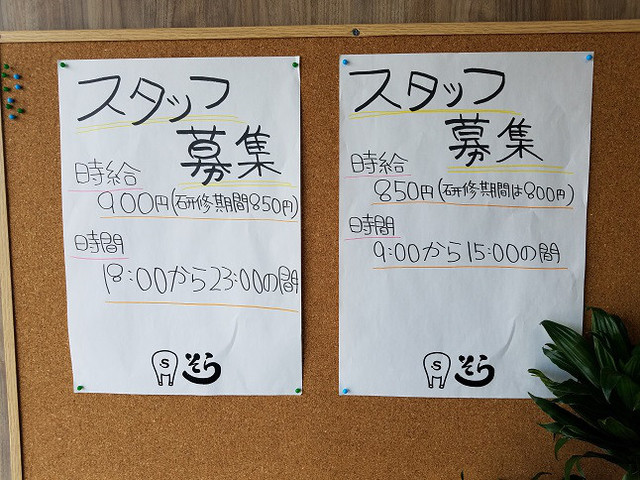 スタッフ
募集
時給
900円(研修期間850円)
時間
18:00から23:00の間
S そら
スタッフ
募集
時給
850円(研修期間は800円)
時間
9:00から15:00の間
S そら